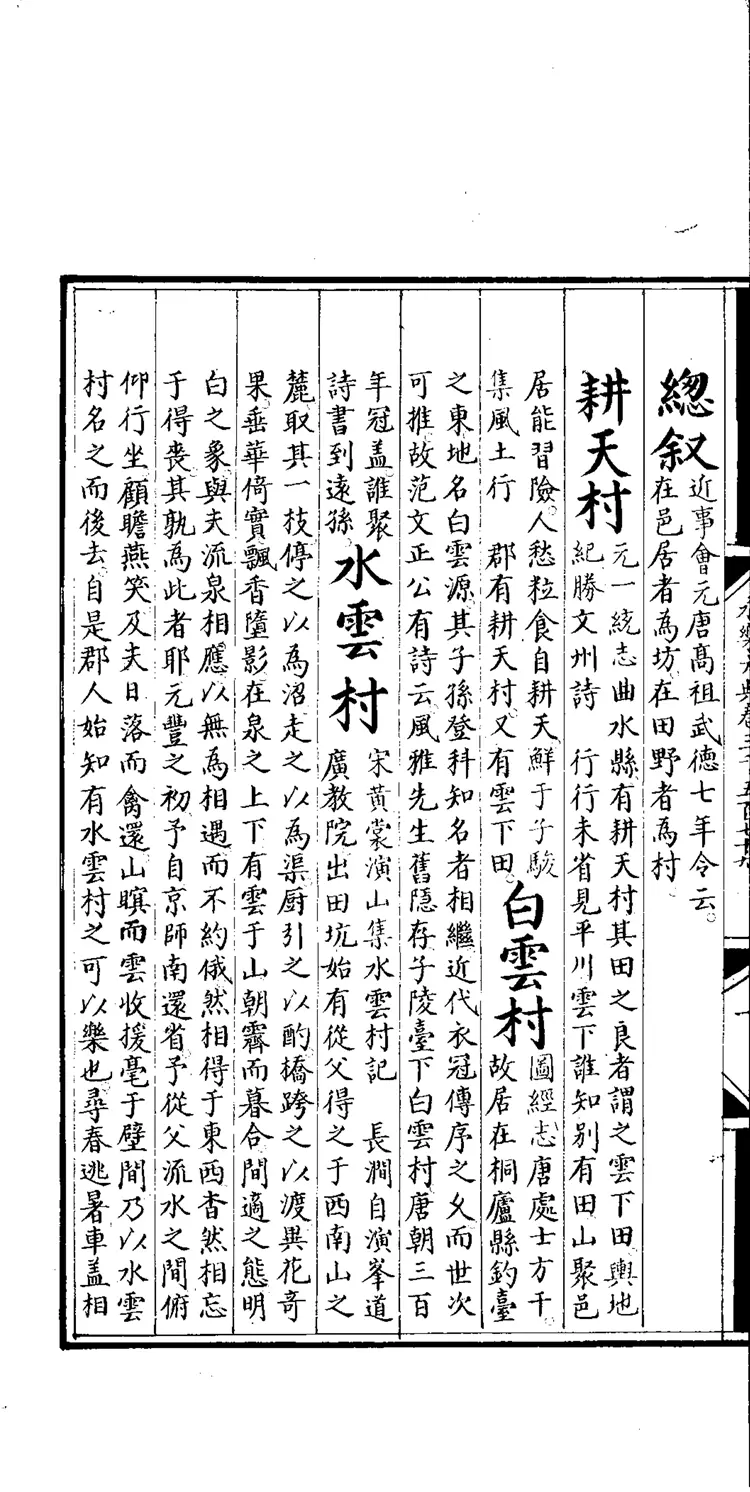 緫叙
近事會元唐髙祖武德七年令云。
在邑居者為坊在田野者為村
耕天村
元一統志曲水縣有耕天村其田之良者謂之雲下田輿地
紀勝文州詩　行行未省見平川雲下誰知别有田山聚邑
居能習險。人愁粒食自耕天鮮于子駿
集風土行　郡有耕天村。又有雲下田。
白雲村
圖經志唐處士方干。
故居在桐廬縣釣臺
之東地名白雲源其子孫登科知名者相繼近代衣冠傳序之久而世次
可推故范文正公有詩云風雅先生舊隱存子陵臺下白雲村唐朝三百
年冠盖誰聚
詩書到遠孫。
水雲村
宋黄裳演山集水雲村記　長澗自演峯道
廣教院出田坑始有從父得之于西南山之
麓取其一枝停之以為沼走之以為渠厨引之以酌橋跨之以渡異花奇
果垂華倚實飄香墮影在泉之上下有雲于山朝霽而暮合間適之態明
白之象與夫流泉相應以無為相遇而不約俄然相得于東西杳然相忘
于得喪其孰為此者耶元豐之初予自京師南還省予從父流水之間俯
仰行坐顧瞻燕笑及夫日落而禽還山暝而雲收援毫于壁間乃以水雲
村名之而後去自是郡人始知有水雲村之可以樂也尋春逃暑車盖相